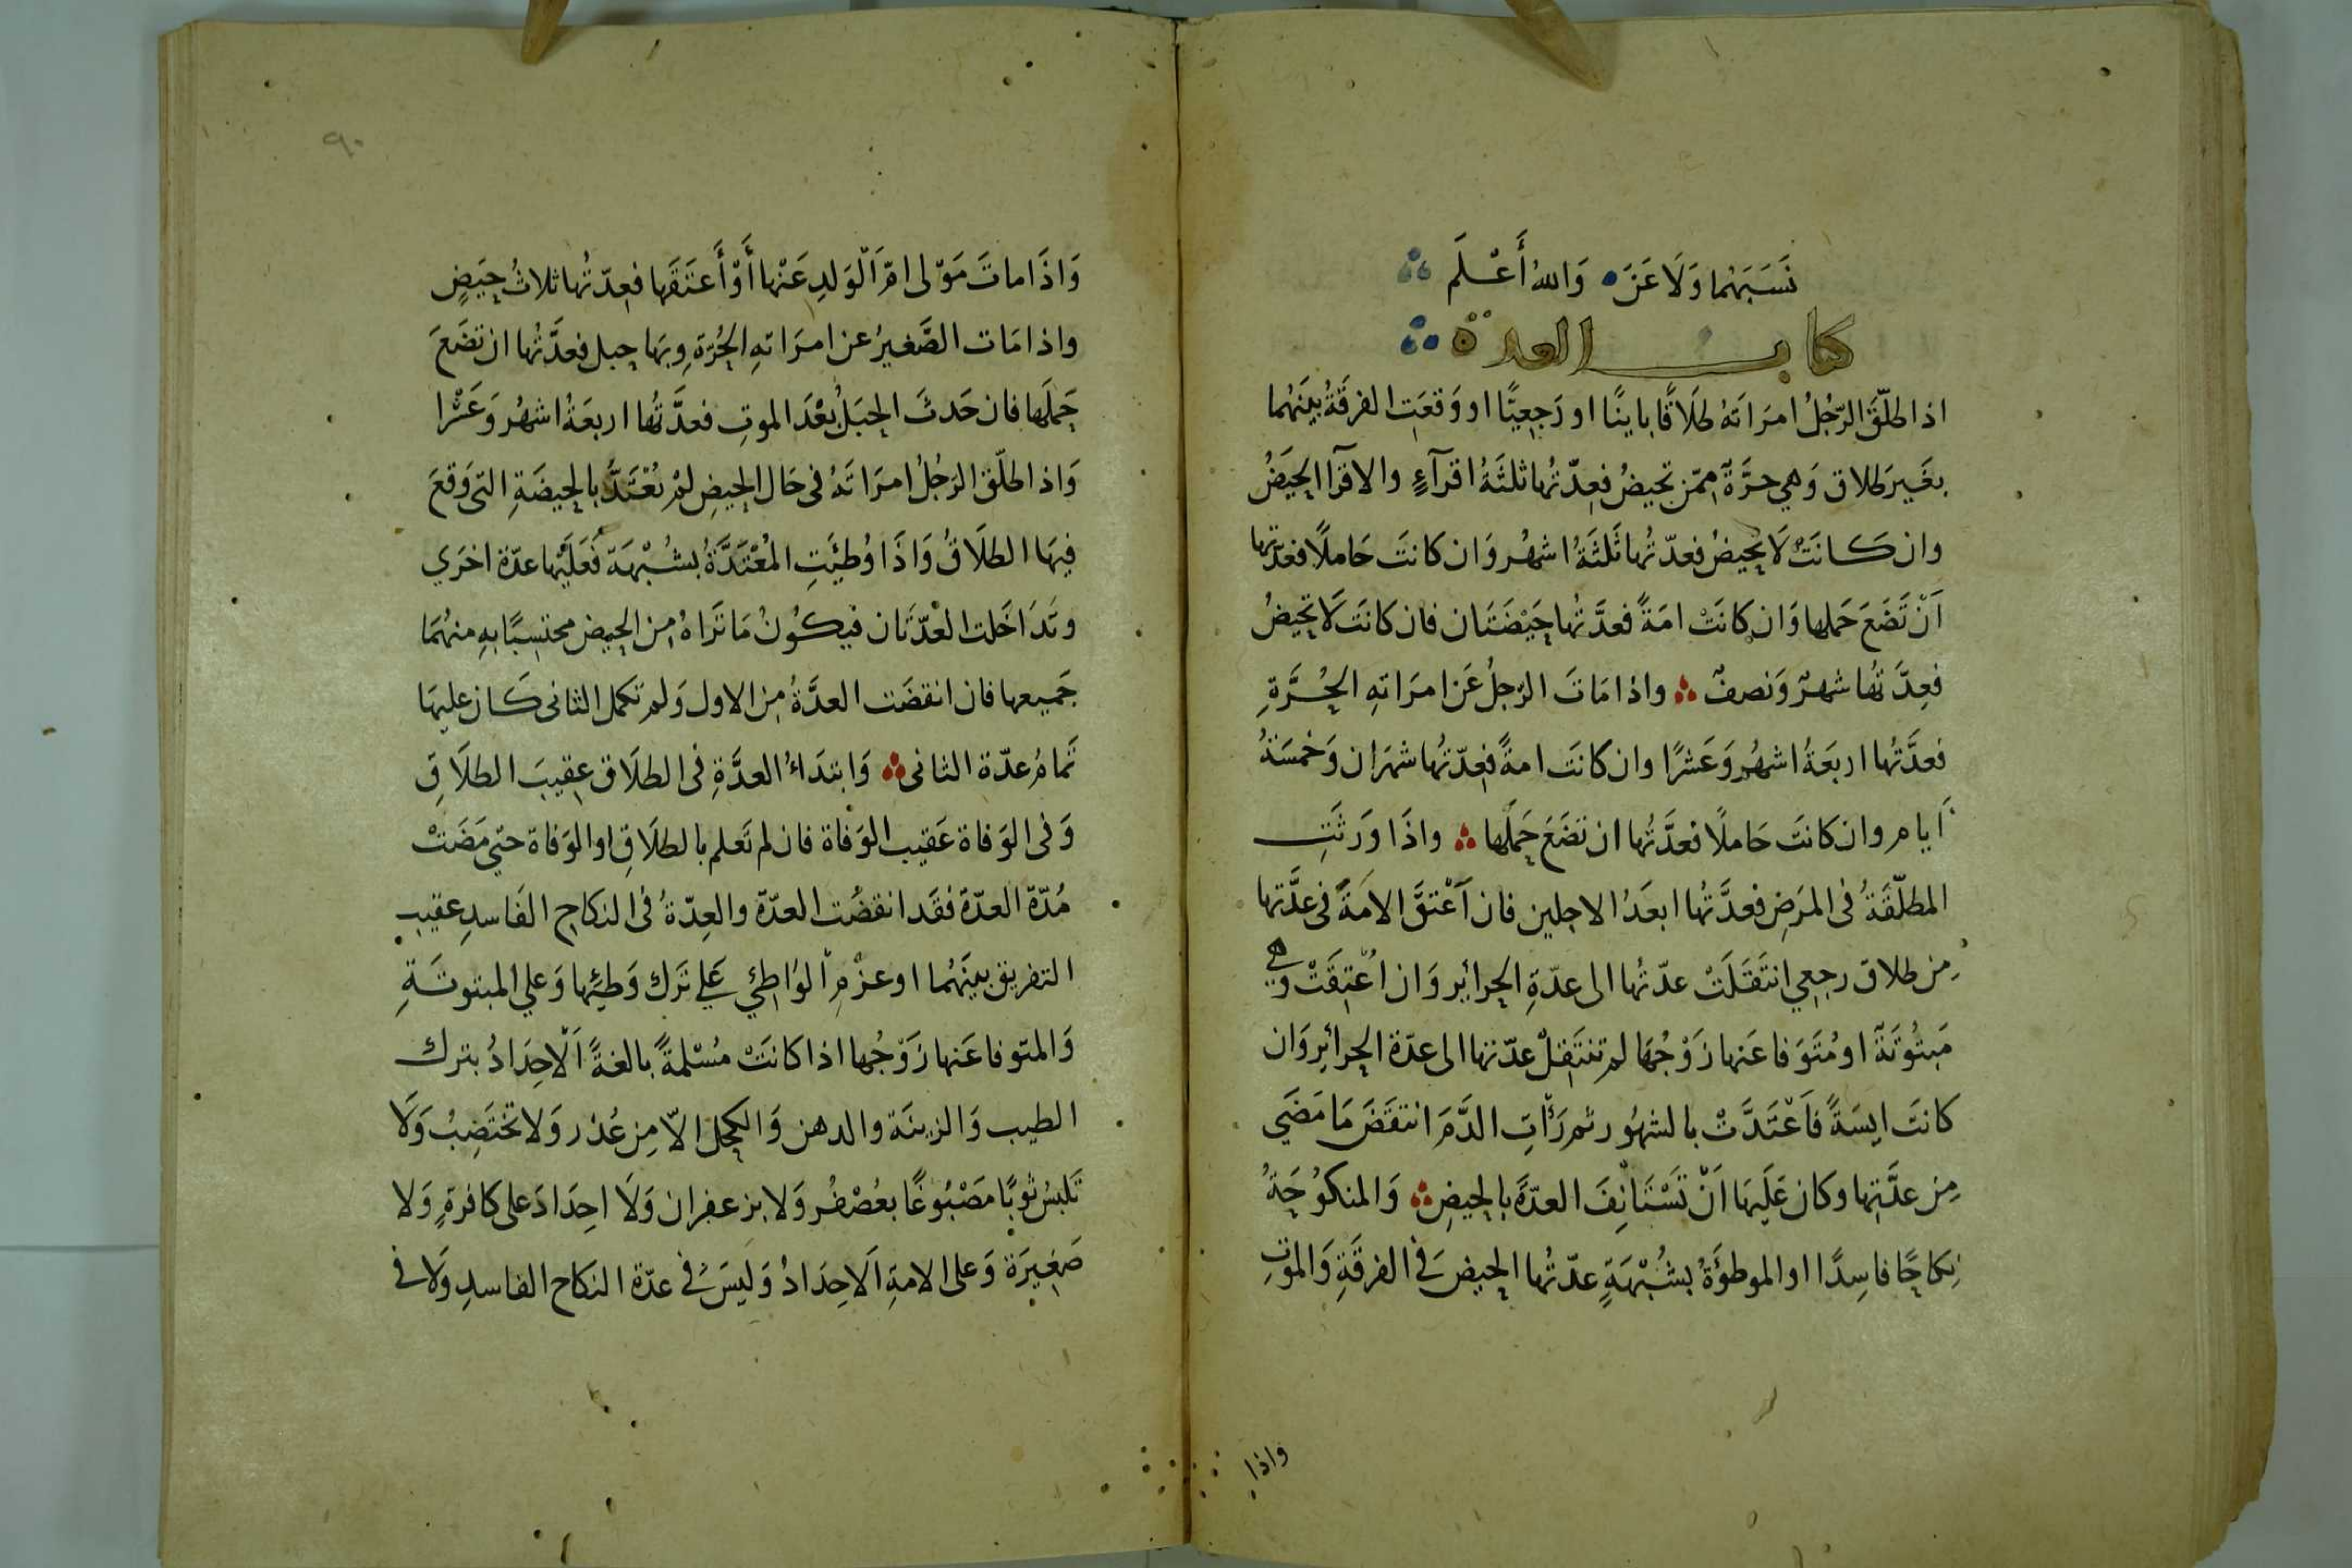 نَسَبَهُما وَلَا عَنَ وَاللهُ أَعْلَم
كتاب العدة
اذا طلّقَ الرّجُلُ امرَاتَهُ طَلَاقًا باينًا او رَجعِيًّا او وَقعَتِ الفرقَةُ بينَهُما
بغَيرِ طلاق وَهي حرَّةٌ ممّن تحيضُ فعِدّتُها ثلثَةُ اقرآءٍ والاقرآ الحِيَضُ
وان كانَتْ لَا تحِيضُ فعدّتُها ثَلثَةُ اشهُر وَان كانتَ حَاملًا فعدّتها
اَنْ تَضَعَ حَملها وَان كانَتْ امَةً فعدَّتُها حَيْضَتَان فان كانَت لَا تحِيضُ
فعِدَّتُها شهرٌ وَنصفٌ واذا مَاتَ الرّجلُ عَن امرَاتهِ الحُرَّةِ
فعدَّتُها اربَعَةُ اشهُر وَعَشرًا وان كانَت امةً فعِدّتُها شهرَان وَخمسَةُ
اَيام وان كانَت حَاملًا فعدَّتُها ان تضَعَ حَملَها واذَا وَرثَتِ
المطلّقَةُ فى المرَضِ فعدَّتُها ابعَدُ الاجلين فان اَعْتقَّ الامَةً فى عدَّتها
مِن طلاق رجعي انتَقَلَتْ عدّتُها الى عدّةِ الحرائِر وَان اُعْتِقَتْ وَهي
مَبتُوتَةٌ او مُتَوَفا عَنها زَوْجُهَا لم تنتَقِلْ عدّتها الى عدّة الحرائِر وَان
كانَت ايسَةً فاَعْتَدَّتْ بالشهُور ثم رَأتِ الدَّمَ انتقَضَ مَا مَضَي
مِن عدَّتِها وكان عَلَيهَا اَنْ تَسْتَانِفَ العدّةَ بالحيضِ وَالمنكوُحَةُ
نِكاحًا فاسِدًا او الموطوَءَةُ بشُبْهَةٍ عدّتُها الحيضُ فى الفرقَةِ وَالموتِ
واذا
٩٠
وَاذَا ماتَ مَوْلى امّ اَلْوَلدِ عَنْها أَوْ أَعتَقَها فعِدّتُها ثلاثُ حِيَضٍ
واذا مَات الصَّغيرُ عن امرَاتهِ الحُرّةِ وبهَا حبل فعدَّتُها ان تضَعَ
حَملَها فان حَدثَ الحبَلُ بعْدَ الموتِ فعدَّتُها اربعَةُ اشهُر وَعَشْرا
وَاذا طلّق الرّجُلُ امرَاتَهُ فى حَال الحيضِ لمْ تُعْتَدَّ بالحيضَةِ التى وَقعَ
فيهَا الطلَاقُ وَاذَا وُطئَتِ المُعْتَدَّةُ بشُبْهَةٍ فَعَلَيْها عدّة اخرَي
وتَدَاخَلت العْدّتَان فيكُونُ مَا تَرَاهُ مِن الحيض محتسِبًا بهِ منهُمَا
جَميعها فان انقضَت العدَّةُ مِن الاول وَلم تكمل الثانى كَان عليهَا
تَمامُ عدّة الثانى وَابتدَاءُ العدَّةِ فى الطلَاق عقِيبَ الطلَاقِ
وَفى الوَفاة عَقيب الوَفاة فان لم تَعلم بالطلَاقِ او الوَفاة حتّي مَضَتْ
مُدّة العدّة فقَد انقضَت العدّة والعِدّةُ فى النكاح الفَاسدِ عقيب
التفريق بينَهُما او عزْمِ الوَاطئِ عَلي تَرك وَطئِها وَعلي المبتوتَةِ
وَالمتوفا عَنها زَوْجُها اذا كانَتْ مُسْلمةً بالغةً اَلْاحِدَادُ بترك
الطيب وَالزينَة والدهن وَالكحل الّا مِن عُذر وَلا تَختَضِبُ وَلَا
تَلبسُ ثوبًا مصْبُوغًا بعُصْفُر وَلا بزعفران وَلَا احِدَادَ على كافرةٍ وَلا
صَغِيرَة وَعلى الامةِ اَلاحِدَادُ وَليسَ فى عدّة النكاح الفاسدِ وَلَا فى